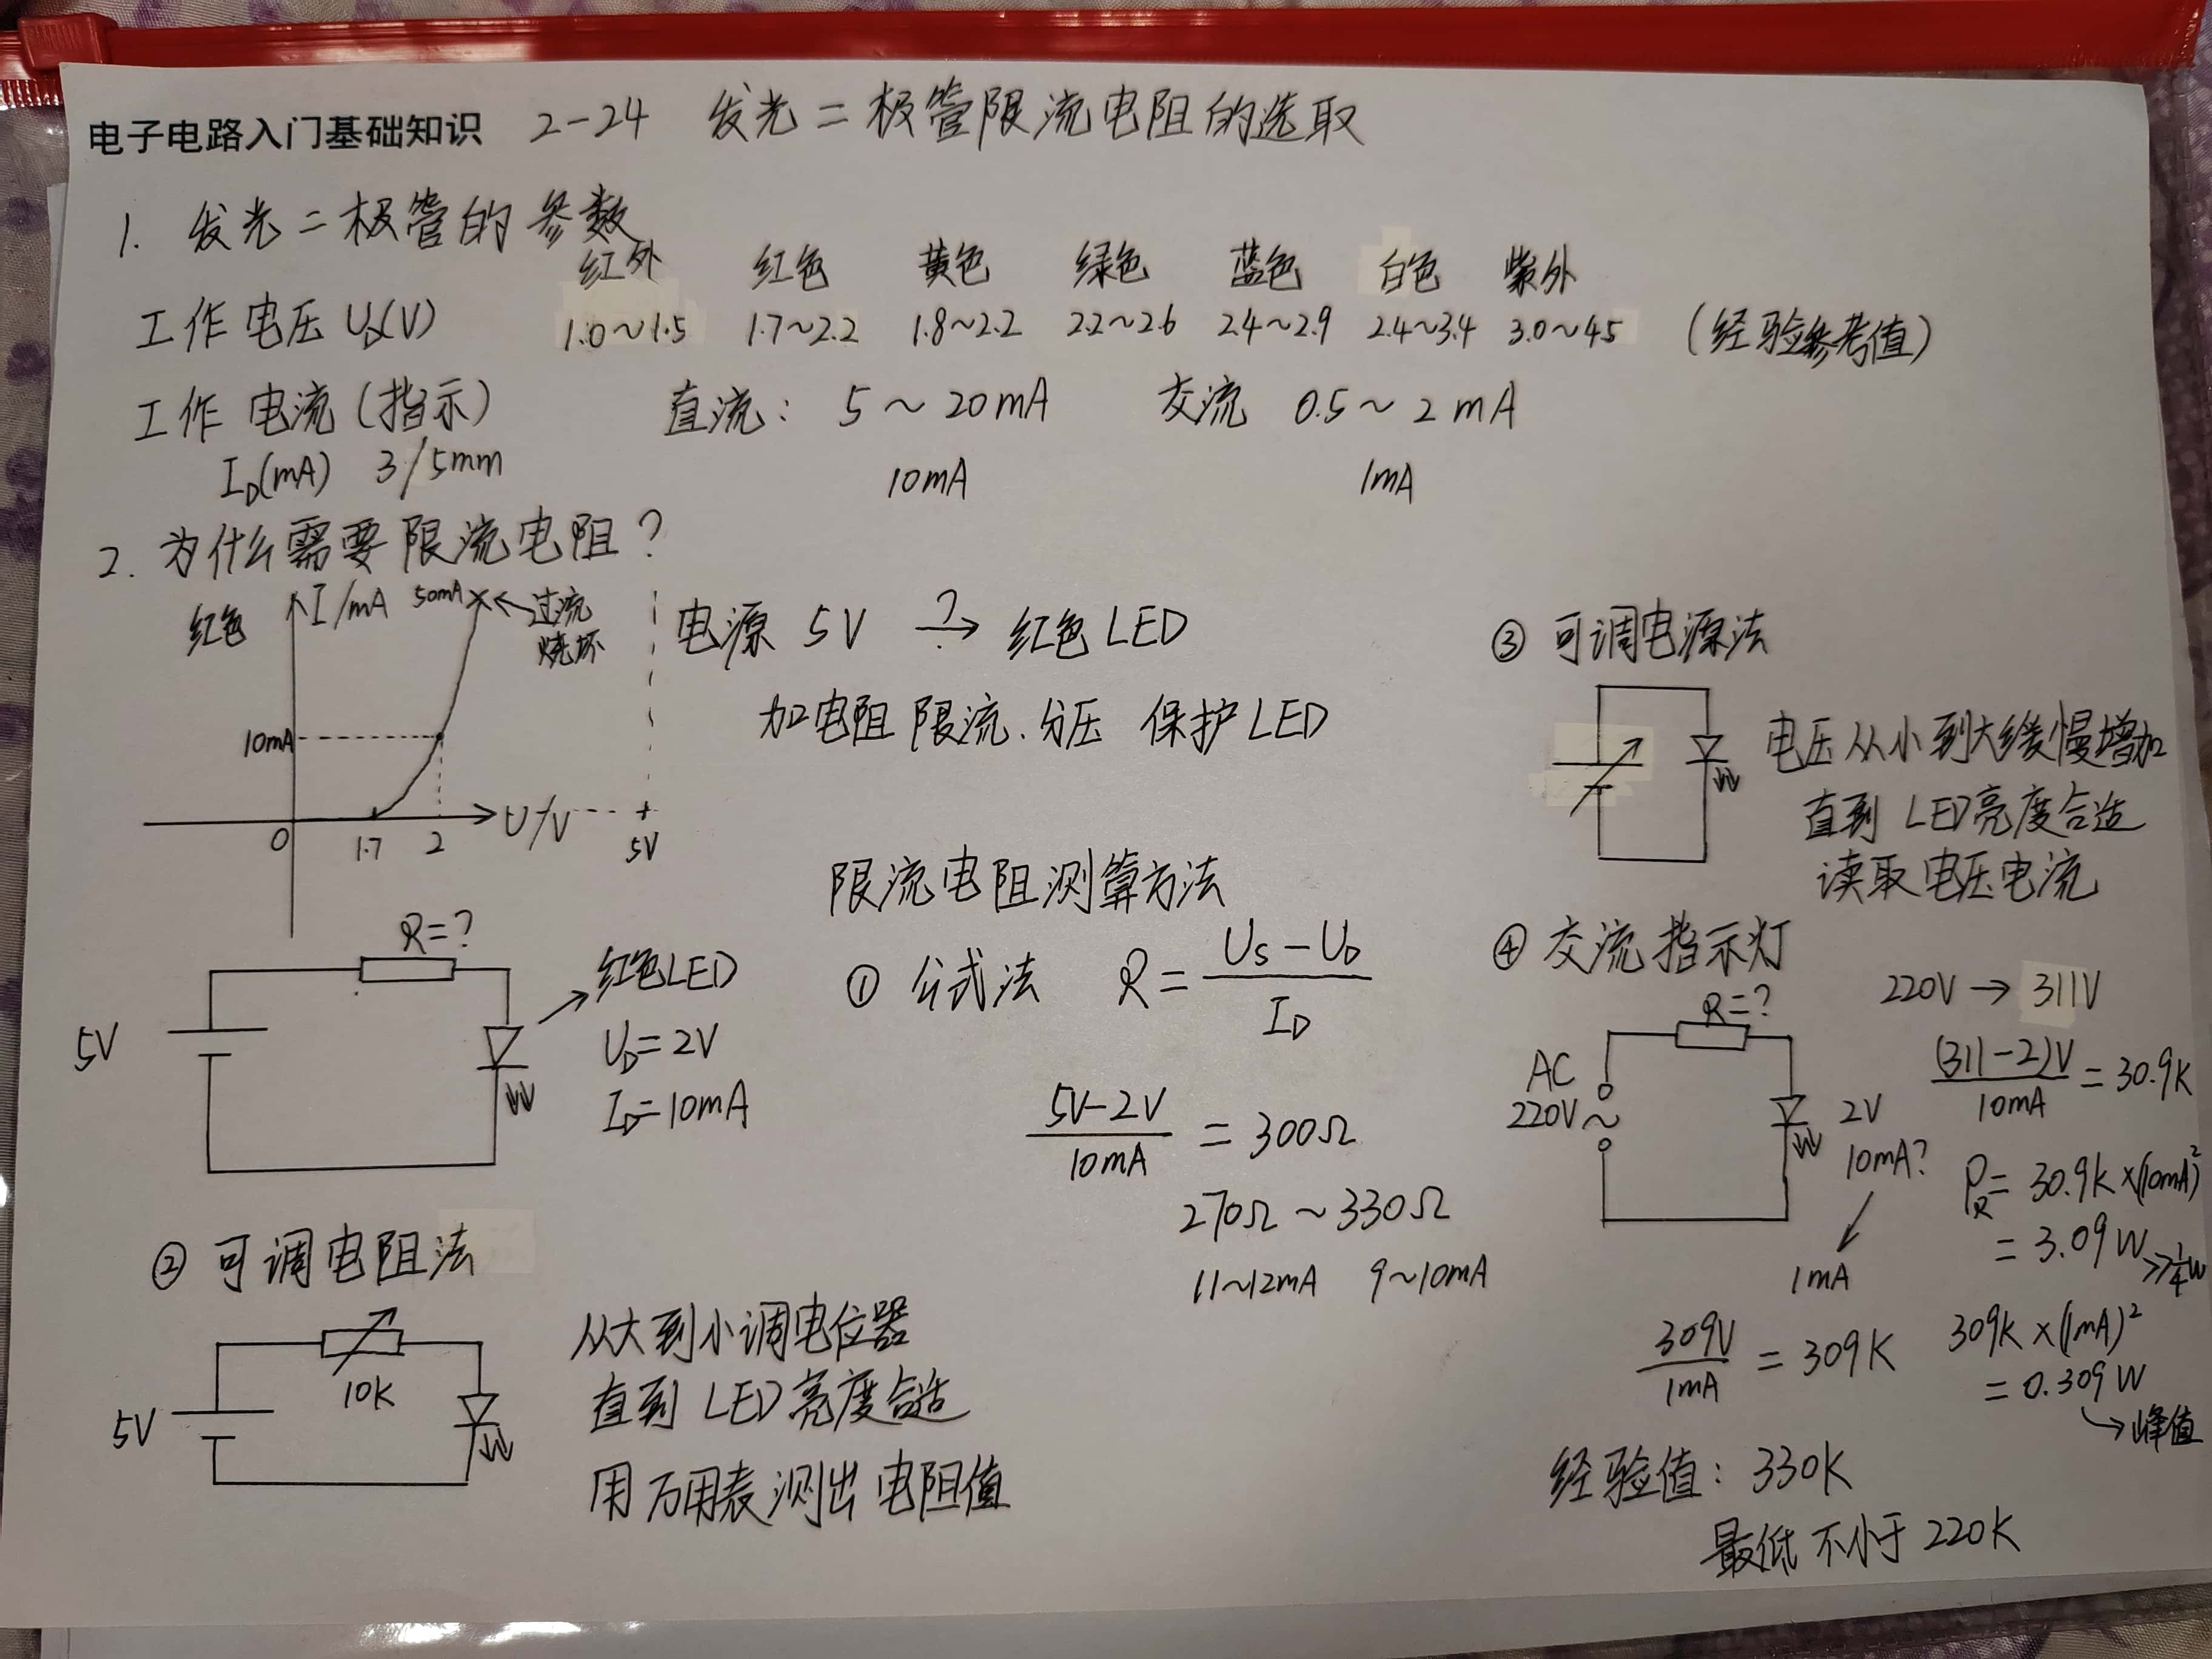 电子电路入门基础知识 2-24 发光二极管限流电阻的选取
1. 发光二极管的参数
红外 红色 黄色 绿色 蓝色 白色 紫外
工作电压 U_D(V) 1.0~1.5 1.7~2.2 1.8~2.2 2.2~2.6 2.4~2.9 2.4~3.4 3.0~4.5 (经验参考值)
工作电流(指示) 直流: 5~20mA 交流 0.5~2mA
I_D(mA) 3/5mm 10mA 1mA
2. 为什么需要限流电阻?
红色 I/mA 50mA ← 过流
烧坏
10mA
0 1.7 2 U/V 5V
电源 5V ?→ 红色LED
加电阻 限流、分压 保护LED
R=?
5V
红色LED
U_D=2V
I_D=10mA
限流电阻测算方法
① 公式法 R = (U_S-U_D)/I_D
(5V-2V)/10mA = 300Ω
270Ω~330Ω
11~12mA 9~10mA
② 可调电阻法
10K
5V
从大到小调电位器
直到 LED亮度合适
用万用表测出电阻值
③ 可调电源法
电压从小到大缓慢增加
直到 LED亮度合适
读取电压电流
④ 交流指示灯
220V → 311V
R=?
AC
220V~
2V
10mA?
1mA
(311-2)V/10mA = 30.9K
P_R = 30.9K×(10mA)²
= 3.09W >> 1/4W
309V/1mA = 309K
309K×(1mA)²
= 0.309W
→峰值
经验值: 330K
最低不小于220K